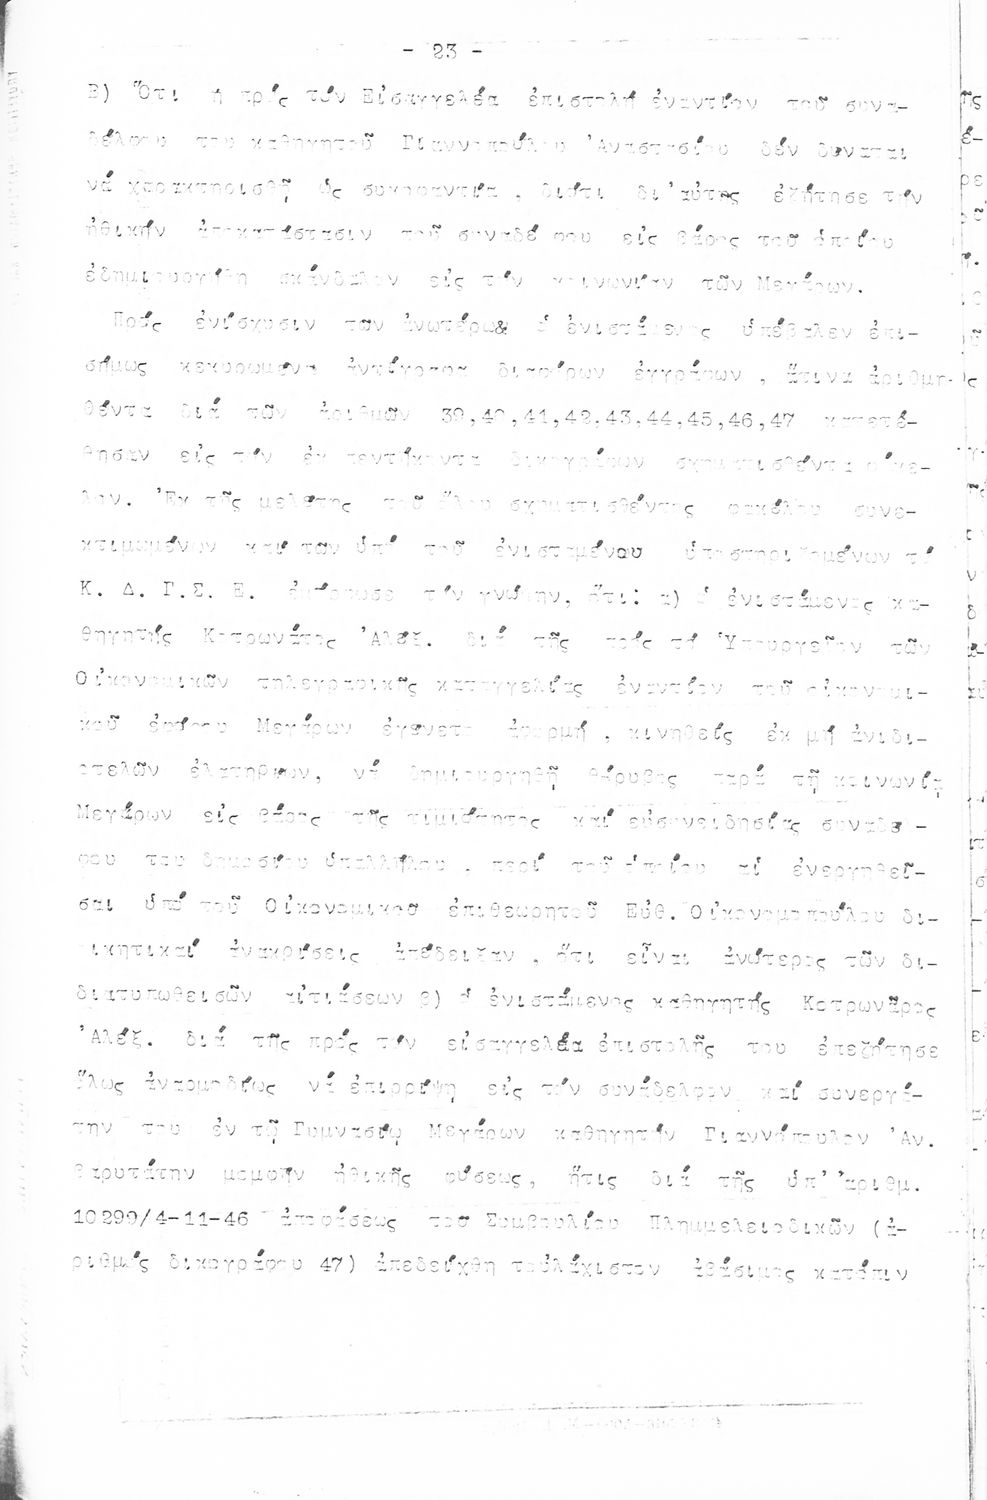 - 23 -
Β) Ὅτι ἡ πρός τόν Εἰσαγγελέα ἐπιστολή ἐναντίον τοῦ συνα-
δέλφου του καθηγητοῦ Γιαννοπούλου Ἀναστασίου δέν δυναται
νά χαρακτηρισθῇ ὡς συκοφαντία , διότι δι'αὐτῆς ἐζήτησε τήν
ἠθικήν ἀποκατάστασιν τοῦ συναδέ φου εἰς βάρος τοῦ ὁποίου
ἐδημιουργήθη σκάνδαλον εἰς τήν κοινωνίαν τῶν Μεγάρων.
Πρός ἐνίσχυσιν των ἀνωτέρω& ὁ ἐνιστάμενος ὑπέβαλεν ἐπι-
σήμως κεκυρωμένα ἀντίγραφα διαφόρων ἐγγράφων , ἅτινα ἀριθμη-
θέντα διά τῶν ἀριθμῶν 39,40,41,42,43,44,45,46,47 κατετέ-
θησαν εἰς τόν ἐκ πεντήκοντα δικογράφων σχηματισθέντα φάκε-
λον. Ἐκ τῆς μελέτης τοῦ ὅλου σχηματισθέντος φακέλου συνε-
κτιμωμένων καί των ὑπό τοῦ ἐνισταμένου ὑποστηριζομένων τό
Κ. Δ. Γ.Σ. Ε. ἐμόρφωσε τήν γνώμην, ὅτι: α) ὁ ἐνιστάμενος κα-
θηγητής Κοτρωνάρος Ἀλέξ. διά τῆς πρός τό Ὑπουργεῖον τῶν
Οἰκονομικῶν τηλεγραφικῆς καταγγελίας ἐναντίον τοῦ οἰκονομι-
κοῦ ἐφόρου Μεγάρων ἐγένετο ἀφορμή , κινηθείς ἐκ μή ἀνιδι-
οτελῶν ἐλατηρίων, νά δημιουργηθῇ θόρυβος παρά τῇ κοινωνίᾳ
Μεγάρων εἰς βάρος τῆς τιμιότητος καί εὐσυνειδησίας συναδέ -
φου του δημοσίου ὑπαλλήλου , περί τοῦ ὁποίου αἱ ἐνεργηθεῖ-
σαι ὑπό τοῦ Οἰκονομικοῦ ἐπιθεωρητοῦ Εὐθ. Οἰκονομοπούλου δι-
ικητικαί ἀνακρίσεις ἀπέδειξαν , ὅτι εἶναι ἀνώτερος τῶν δι-
διατυπωθεισῶν αἰτιάσεων β) ὁ ἐνιστάμενος καθηγητής Κοτρωνᾶρος
Ἀλέξ. διά τῆς πρός τόν εἰσαγγελέα ἐπιστολῆς του ἐπεζήτησε
ὅλως ἀναρμοδίως νά ἐπιρρίψῃ εἰς τόν συνάδελφον καί συνεργά-
την του ἐν τῷ Γυμνασίῳ Μεγάρων καθηγητήν Γιαννόπουλον Ἀν.
βαρυτάτην μομφήν ἠθικῆς φύσεως, ἥτις διά τῆς ὑπ' ἀριθμ.
10299/4-11-46 ἀποφάσεως τοῦ Συμβουλίου Πλημμελειοδικῶν (ἀ-
ριθμός δικογράφου 47) ἀπεδείχθη τοὐλάχιστον ἀβάσιμος κατόπιν